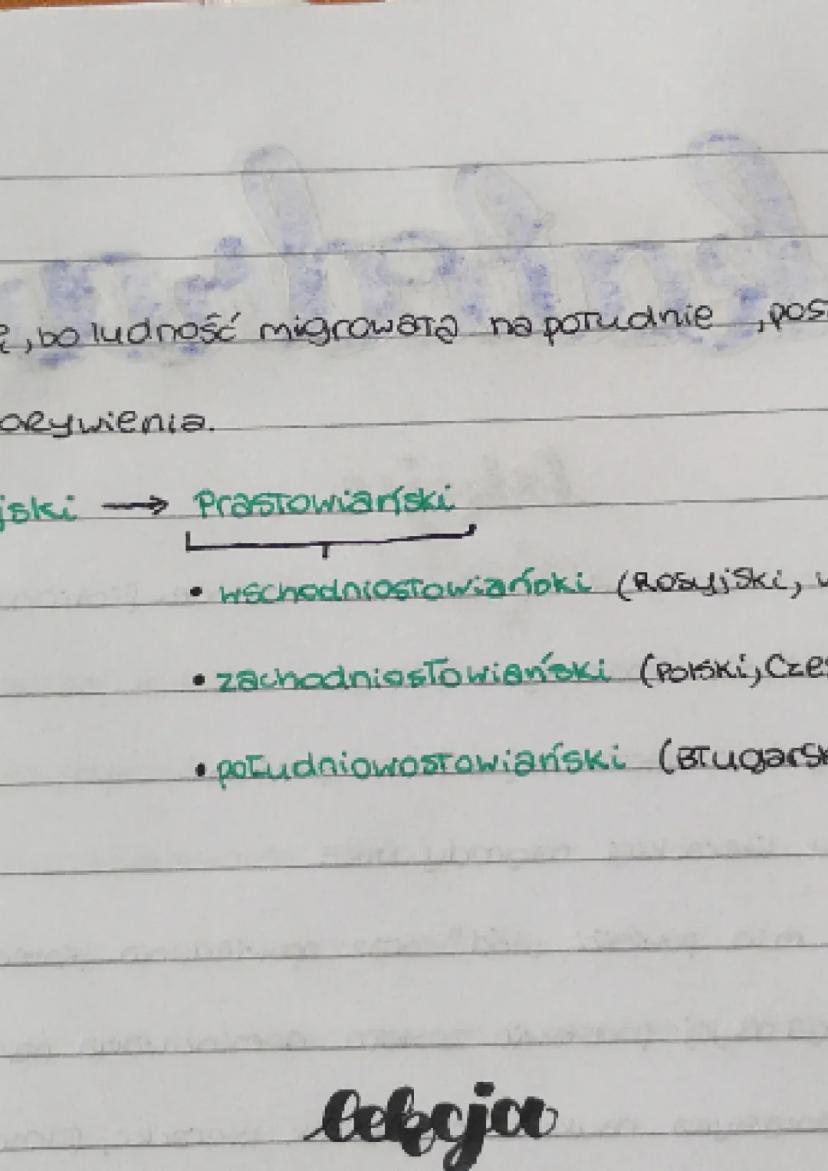 , bo ludność migrowała na południe, pos
orywienia.
jski → Prasłowiański
• wschodniosłowiański (Rosyjski,
• zachodniosłowiański (Polski, Cze
• południowosłowiański (Bługarsk
lekcja